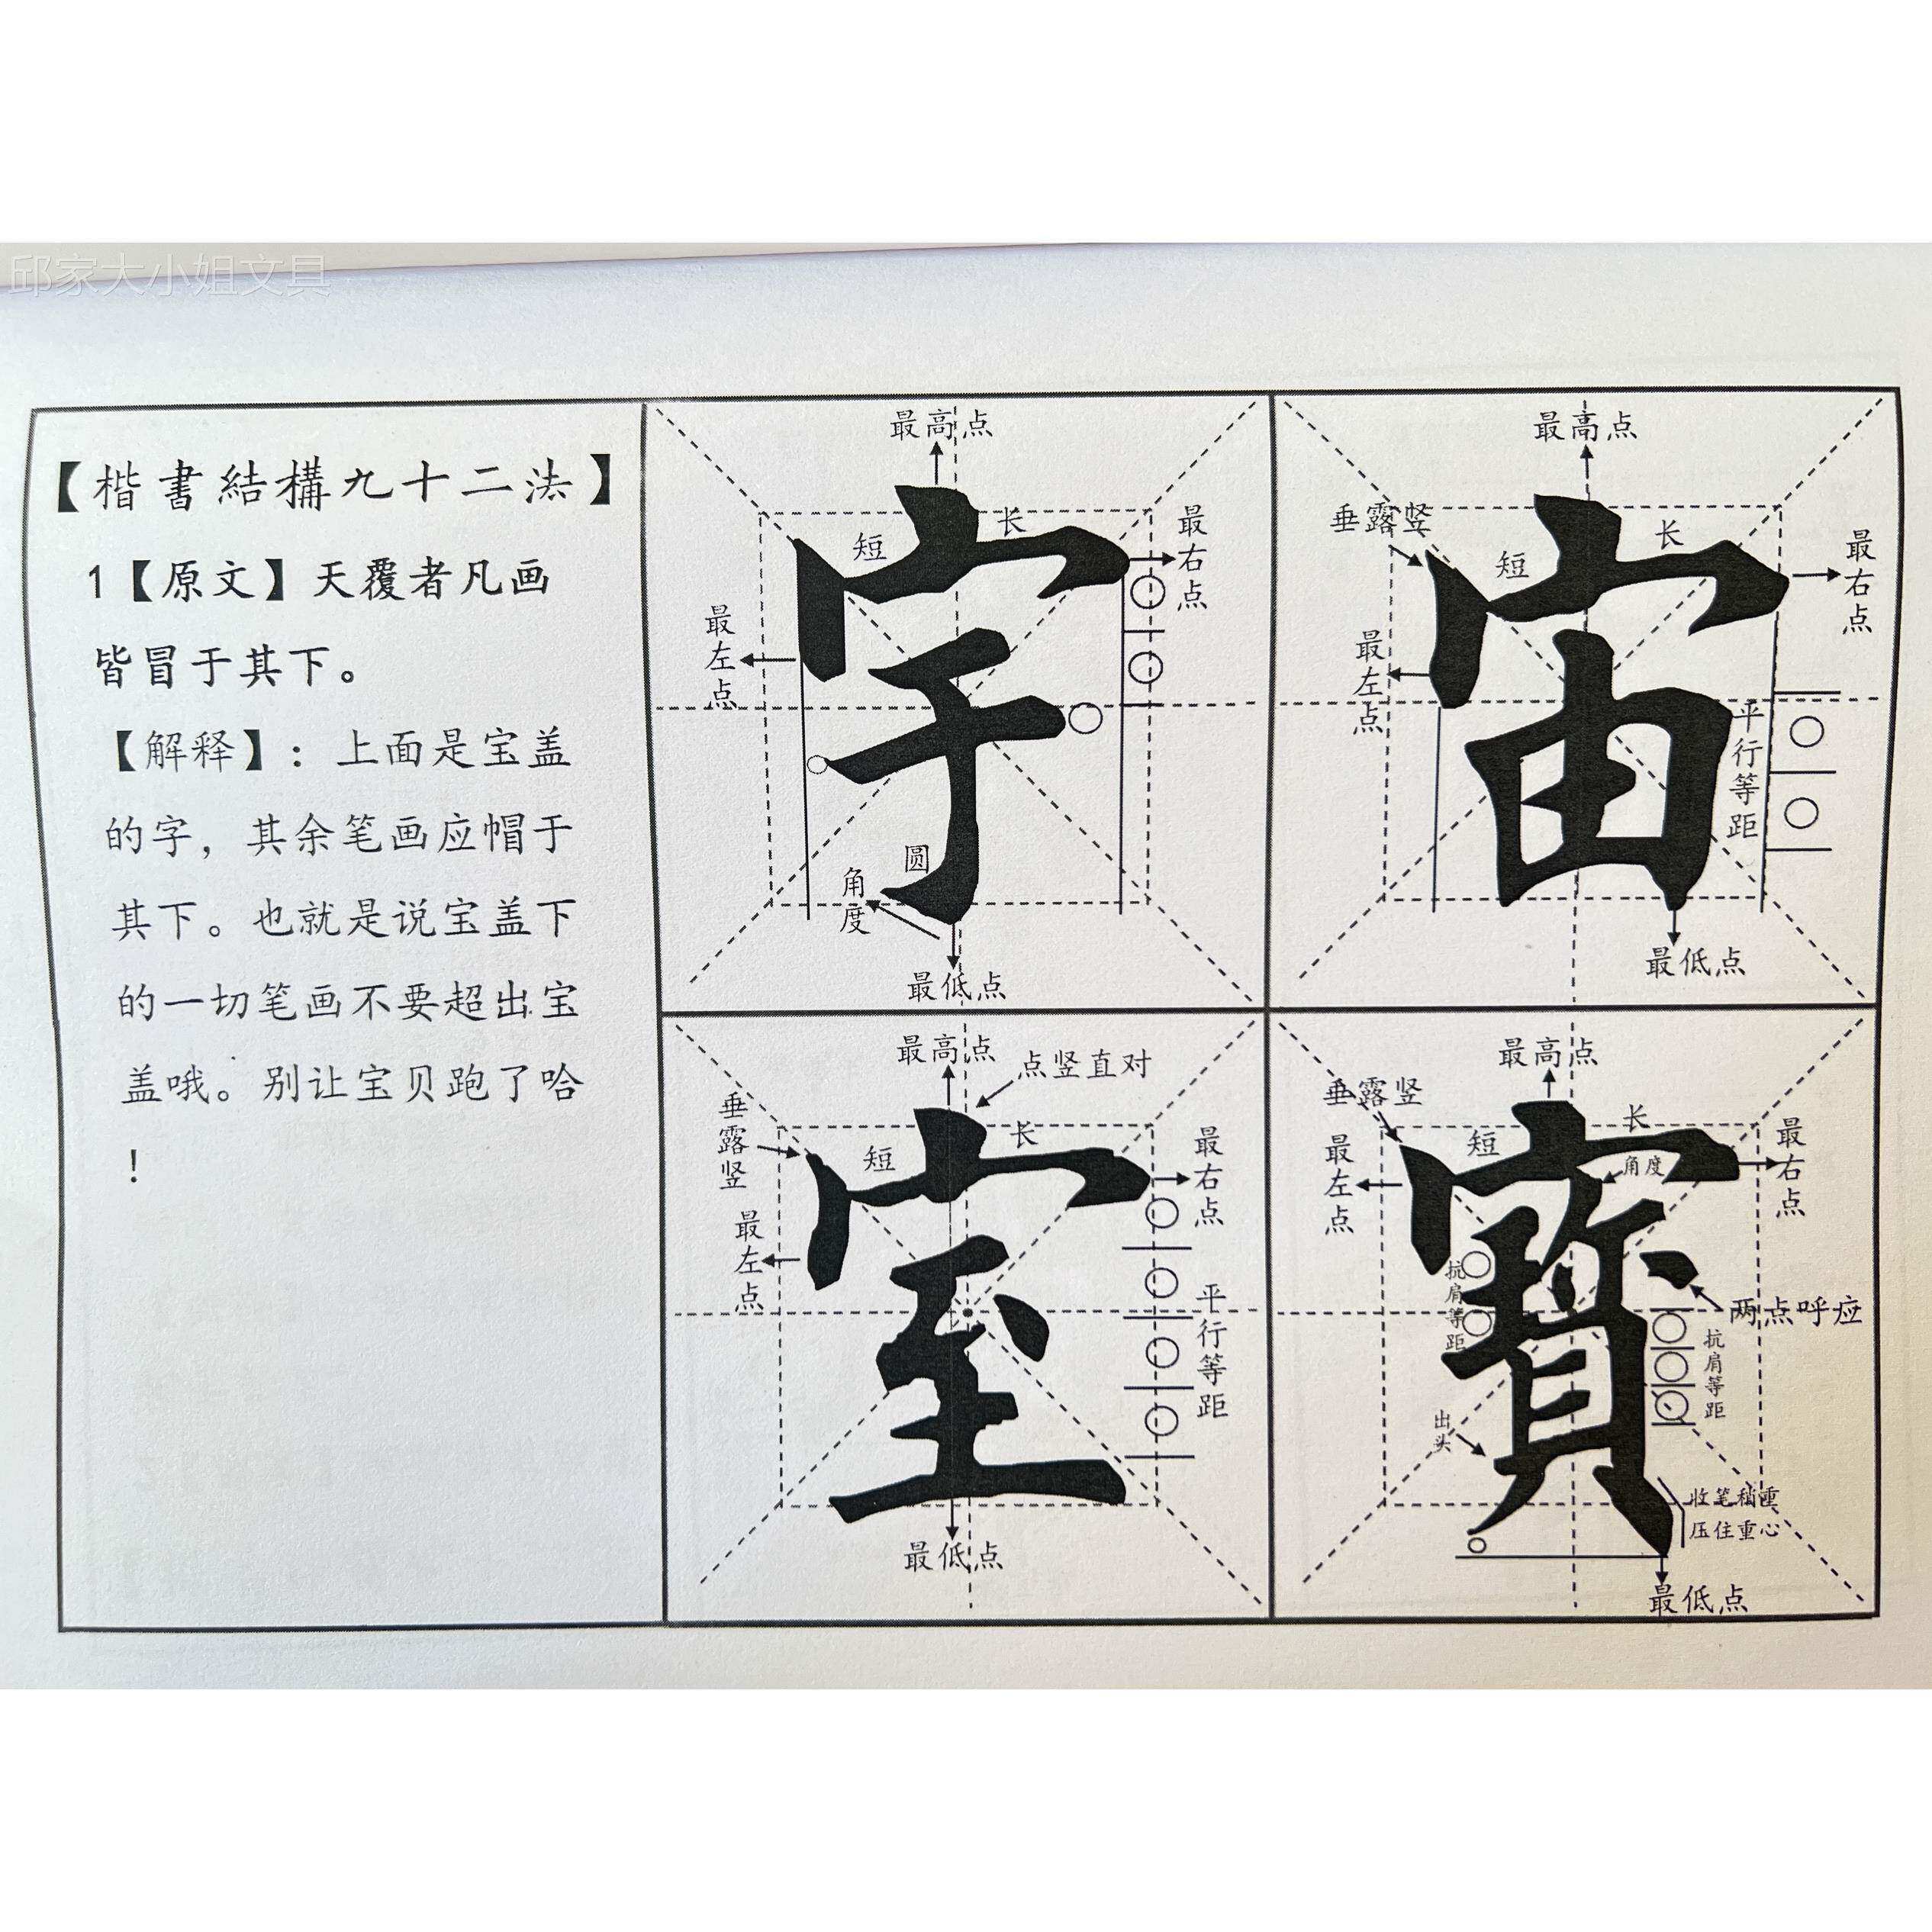 邱家大小姐文具
【楷書結構九十二法】
1【原文】天覆者凡画
皆冒于其下。
【解释】:上面是宝盖
的字,其余笔画应帽于
其下。也就是说宝盖下
的一切笔画不要超出宝
盖哦。别让宝贝跑了哈
!
最高点
长
短
最右点
最左点
字
圆
角度
最低点
最高点
垂露竖
长
短
最右点
最左点
宙
平行等距
最低点
最高点
点竖直对
垂露竖
长
短
最右点
最左点
室
平行等距
最低点
最高点
垂露竖
长
短
最右点
最左点
角度
寶
抗肩等距
两点呼应
抗肩等距
出头
收笔稍重
压住重心
最低点